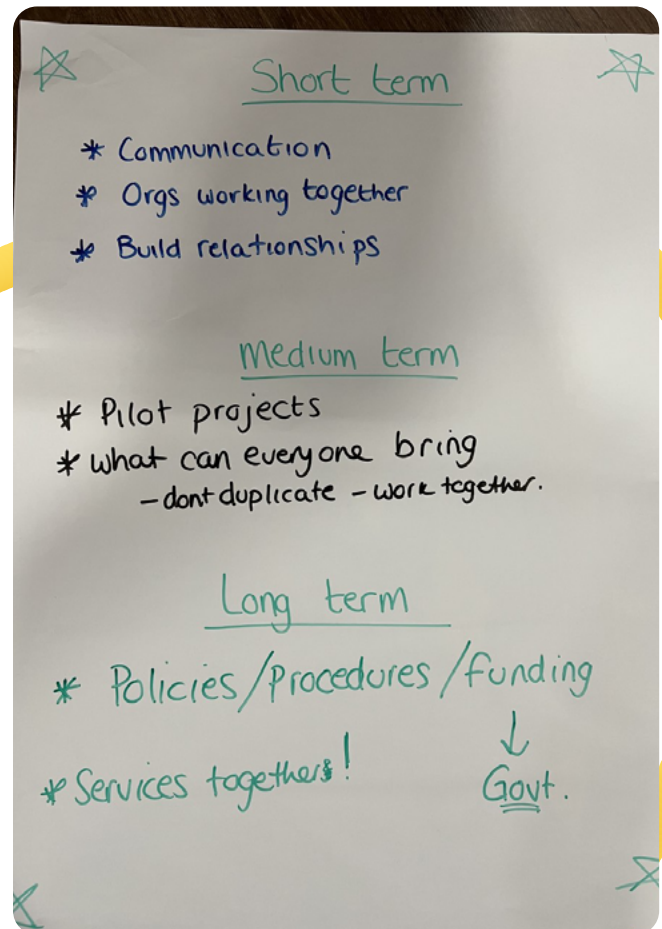 Short term
* Communication
* Orgs working together
* Build relationships
Medium term
* Pilot projects
* what can everyone bring
- dont duplicate - work together.
Long term
* Policies/Procedures/funding
↓
* Services together!
Govt.